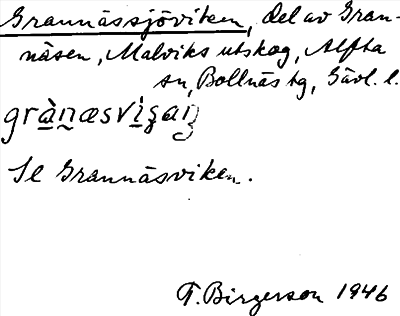 Grannässjöviken, del av Gran-
näsen, Malviks utskog, Alfta
sn, Bollnäs tg, Gävl. l.
Se Grannäsviken.
T. Birgerson 1946